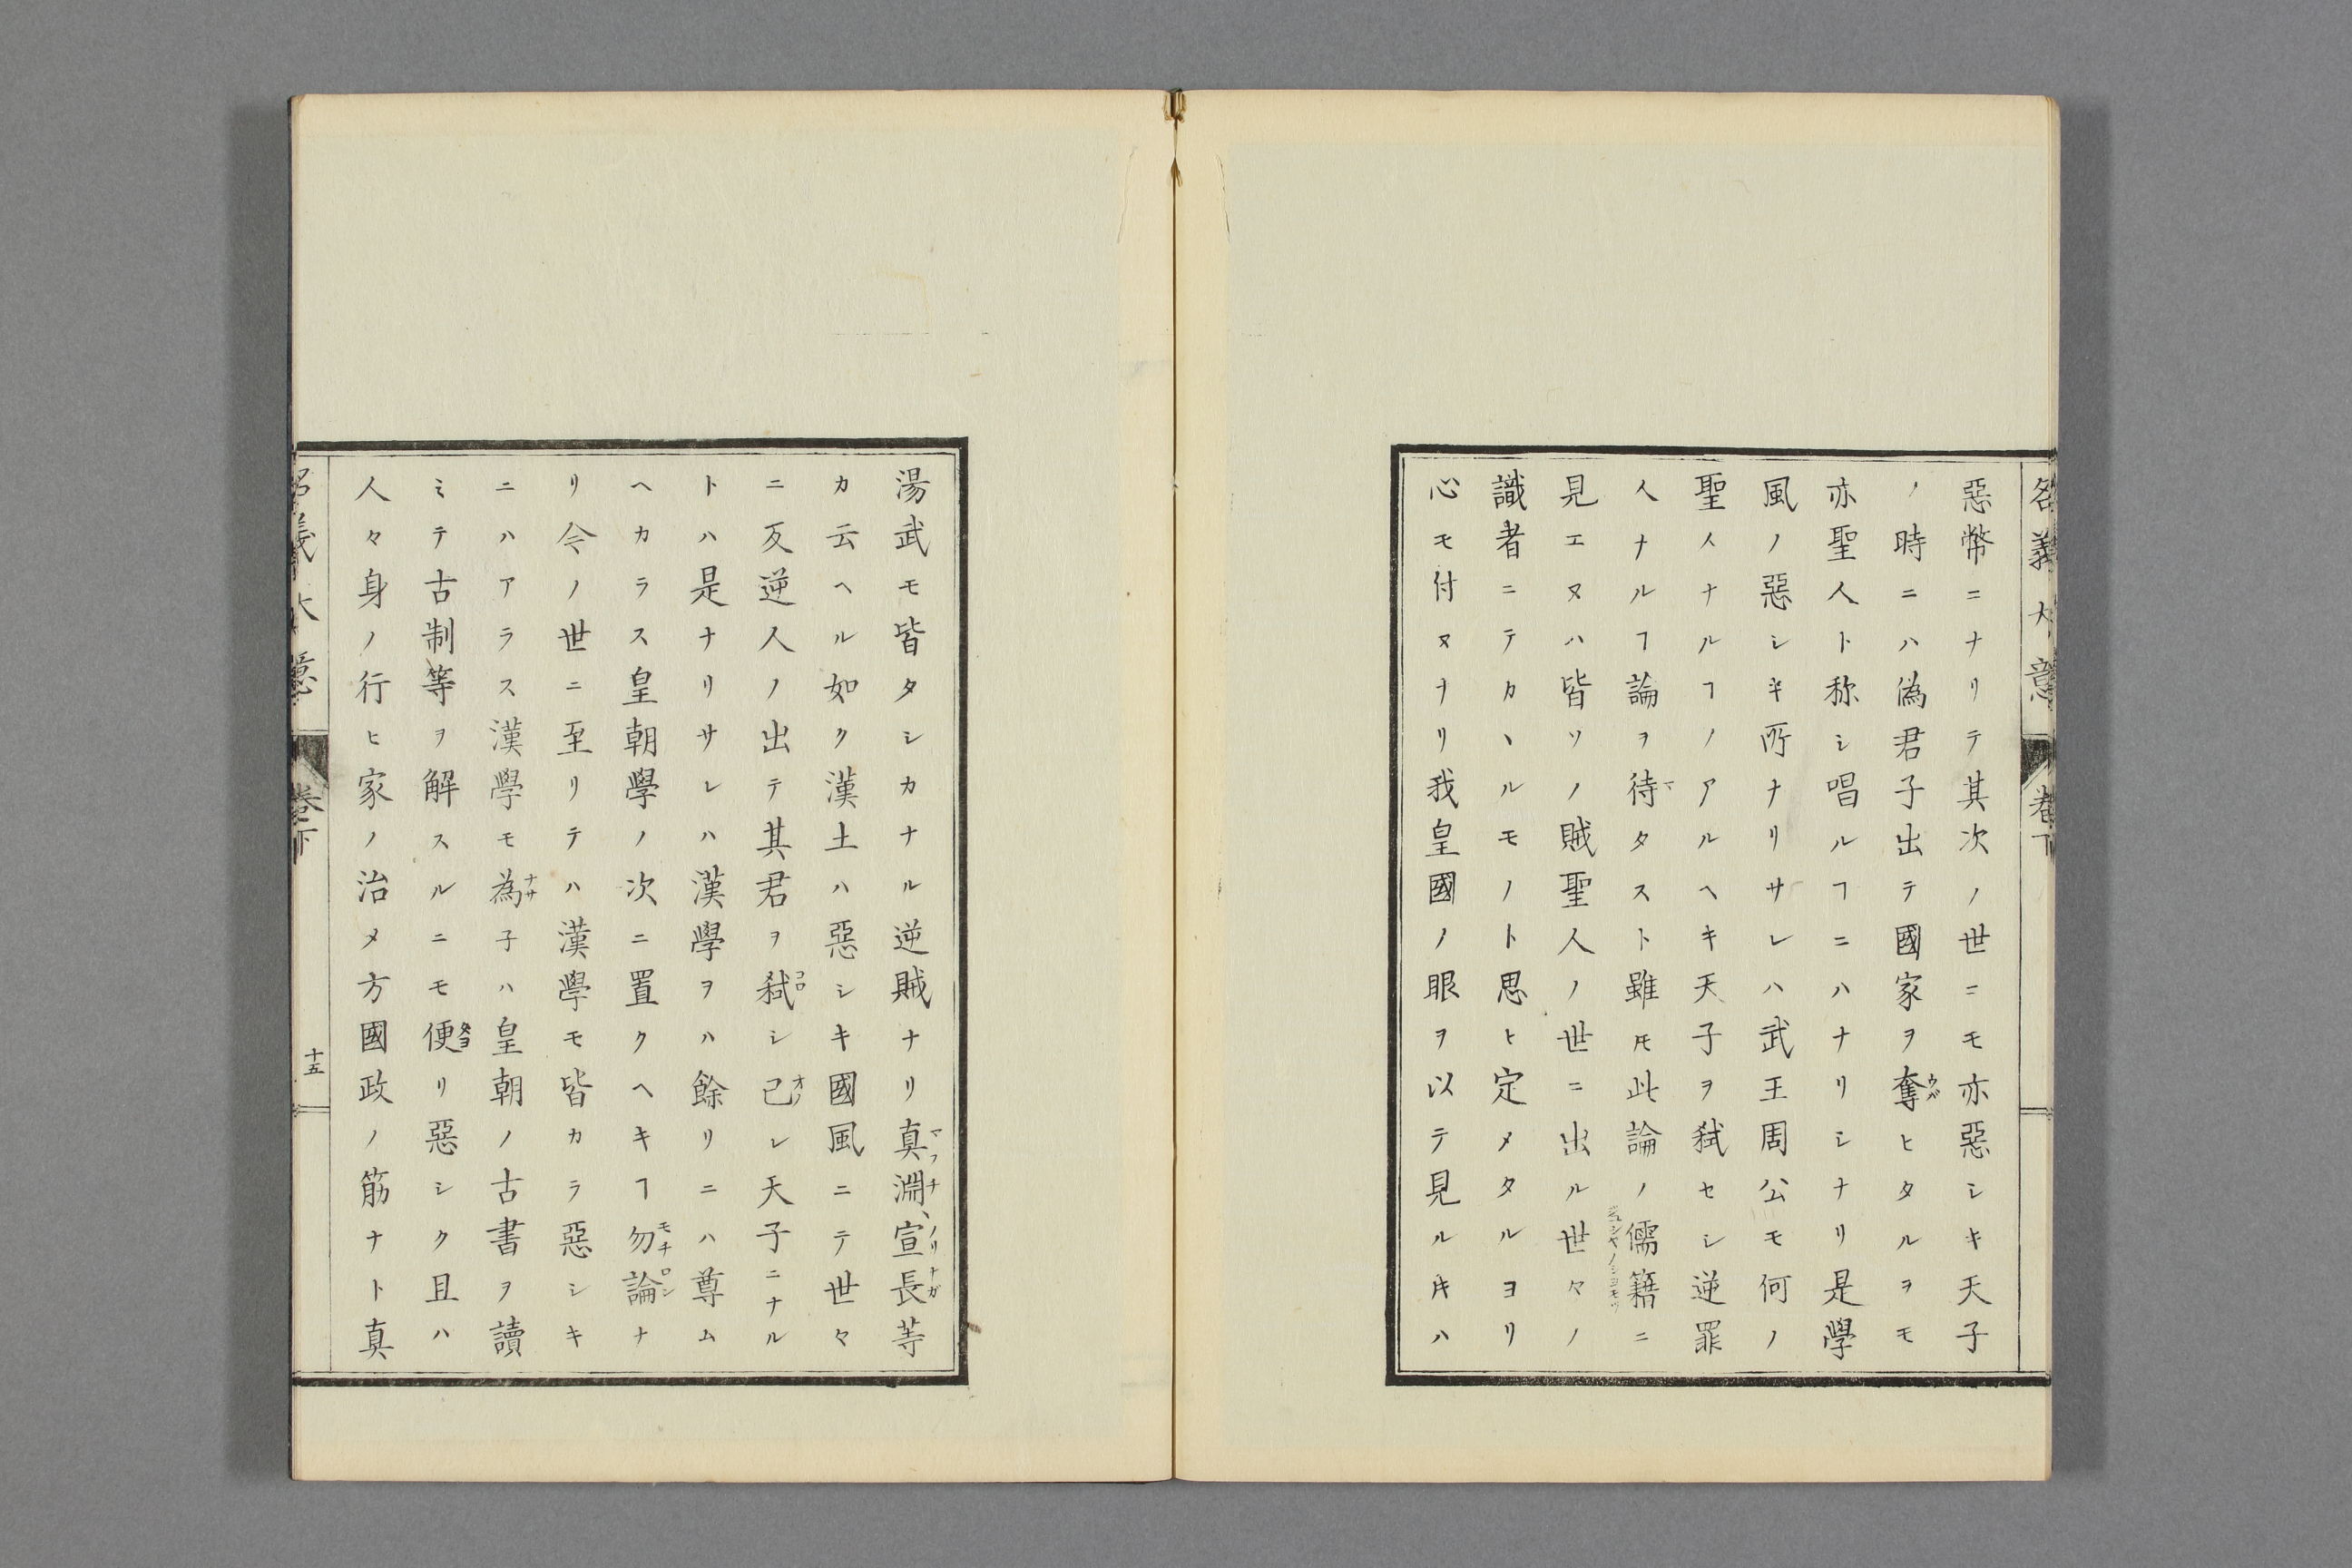 名義大意
卷下
惡幣ニナリテ其次ノ世ニモ亦惡シキ天子
ノ時ニハ偽君子出テ國家ヲ奪ヒタルヲモ
ウバ
亦聖人ト称シ唱ルヿニハナリシナリ是學
風ノ惡シキ所ナリサレハ武王周公モ何ノ
聖人ナルヿノアルヘキ天子ヲ弑セシ逆罪
人ナルヿ論ヲ待タスト雖𪜈此論ノ儒籍ニ
マ
見エヌハ皆ソノ賊聖人ノ世ニ出ル世々ノ
識者ニテカヽルモノト思ヒ定メタルヨリ
心モ付ヌナリ我皇國ノ眼ヲ以テ見ル𪜈ハ
湯武モ皆タシカナル逆賊ナリ真淵宣長等
マフチ、ノリナガ
カ云ヘル如ク漢土ハ惡シキ國風ニテ世々
ニ反逆人ノ出テ其君ヲ弑シ己レ天子ニナル
コロ
オノ
トハ是ナリサレハ漢學ヲハ餘リニハ尊ム
ヘカラス皇朝學ノ次ニ置クヘキヿ勿論ナ
モチロン
リ今ノ世ニ至リテハ漢學モ皆カラ惡シキ
ニハアラス漢學モ為子ハ皇朝ノ古書ヲ讀
ナサ
ミテ古制等ヲ解スルニモ便リ惡シク且ハ
タヨ
人々身ノ行ヒ家ノ治メ方國政ノ筋ナト真
名義大意
卷下
十五